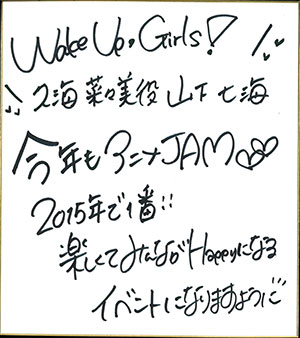 Wake Up, Girls!
久海菜々美役 山下七海
今年もアニメJAM♡♡
2015年で1番!!
楽しくてみんながHappyになる
イベントになりますように